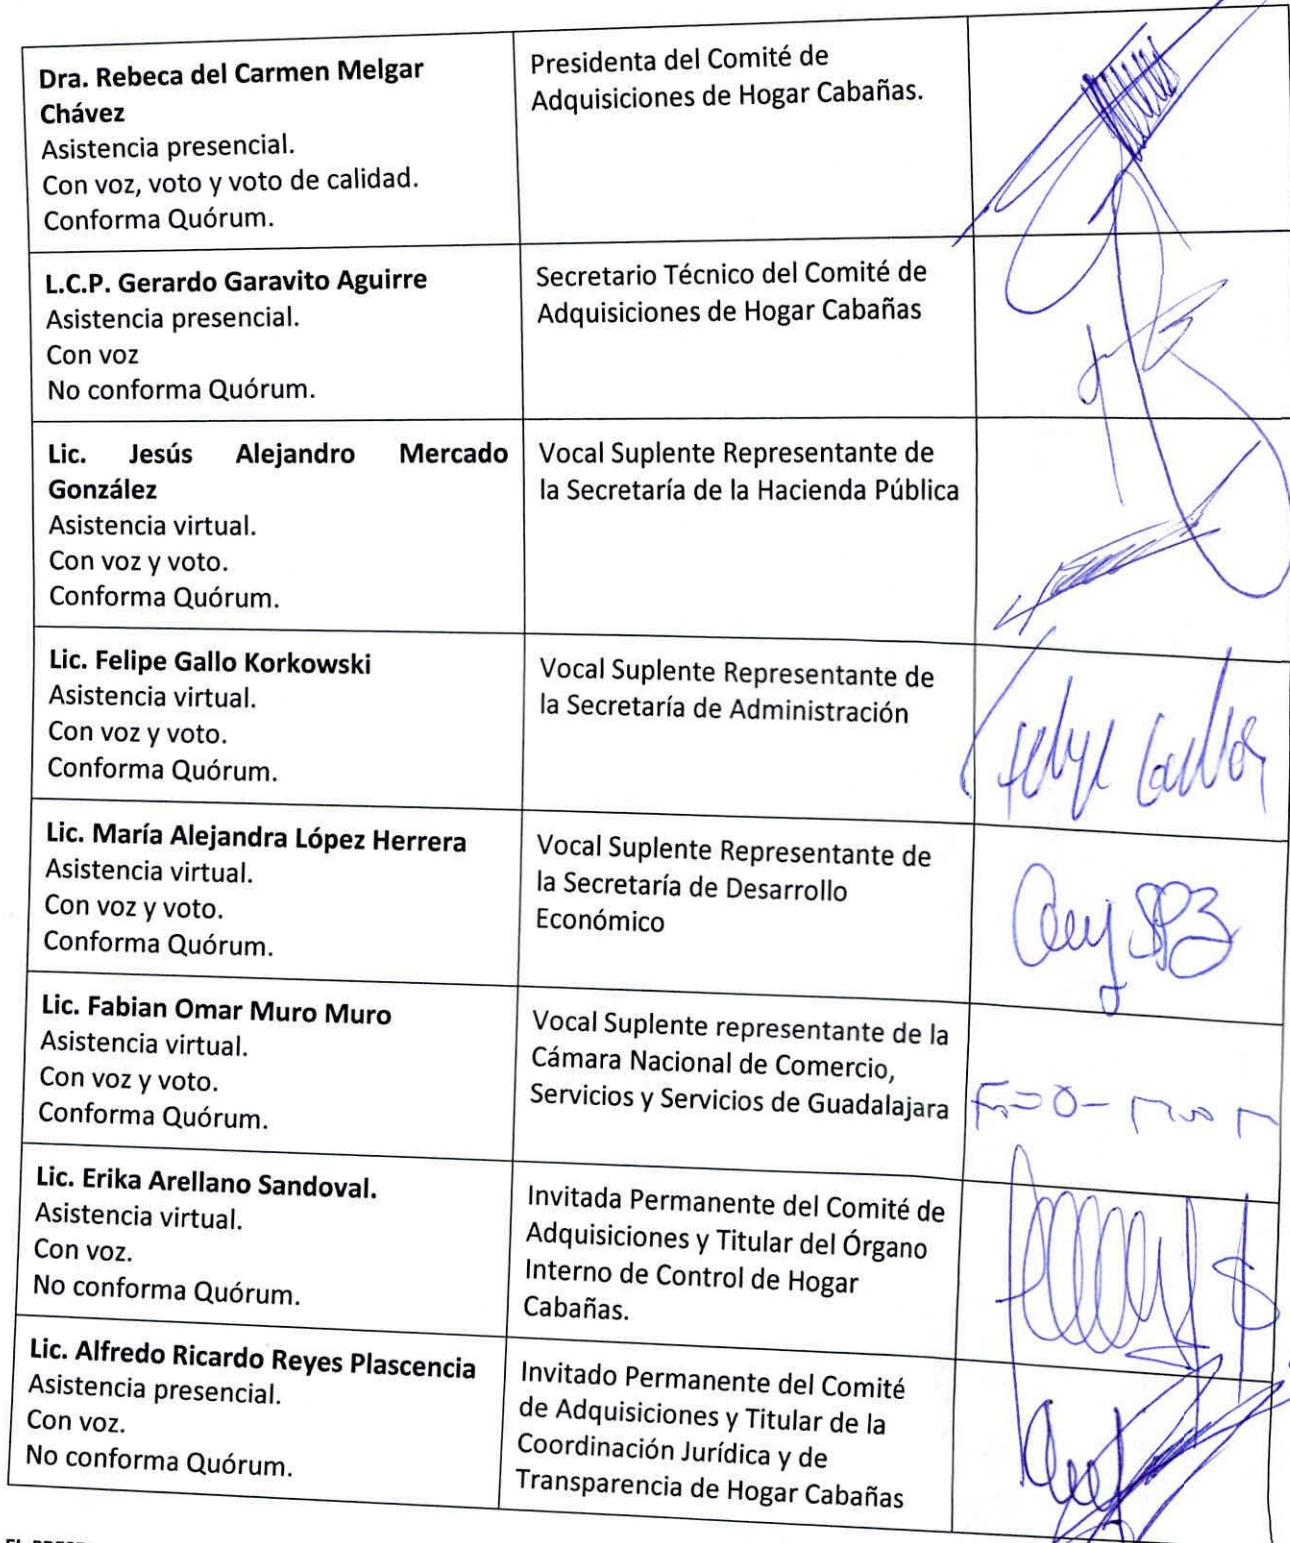 Dra. Rebeca del Carmen Melgar
Chávez
Asistencia presencial.
Con voz, voto y voto de calidad.
Conforma Quórum.
Presidenta del Comité de
Adquisiciones de Hogar Cabañas.
L.C.P. Gerardo Garavito Aguirre
Asistencia presencial.
Con voz
No conforma Quórum.
Secretario Técnico del Comité de
Adquisiciones de Hogar Cabañas
Lic. Jesús Alejandro Mercado
González
Asistencia virtual.
Con voz y voto.
Conforma Quórum.
Vocal Suplente Representante de
la Secretaría de la Hacienda Pública
Lic. Felipe Gallo Korkowski
Asistencia virtual.
Con voz y voto.
Conforma Quórum.
Vocal Suplente Representante de
la Secretaría de Administración
Felipe Gallo
Lic. María Alejandra López Herrera
Asistencia virtual.
Con voz y voto.
Conforma Quórum.
Vocal Suplente Representante de
la Secretaría de Desarrollo
Económico
Lic. Fabian Omar Muro Muro
Asistencia virtual.
Con voz y voto.
Conforma Quórum.
Vocal Suplente representante de la
Cámara Nacional de Comercio,
Servicios y Servicios de Guadalajara
Lic. Erika Arellano Sandoval.
Asistencia virtual.
Con voz.
No conforma Quórum.
Invitada Permanente del Comité de
Adquisiciones y Titular del Órgano
Interno de Control de Hogar
Cabañas.
Lic. Alfredo Ricardo Reyes Plascencia
Asistencia presencial.
Con voz.
No conforma Quórum.
Invitado Permanente del Comité
de Adquisiciones y Titular de la
Coordinación Jurídica y de
Transparencia de Hogar Cabañas